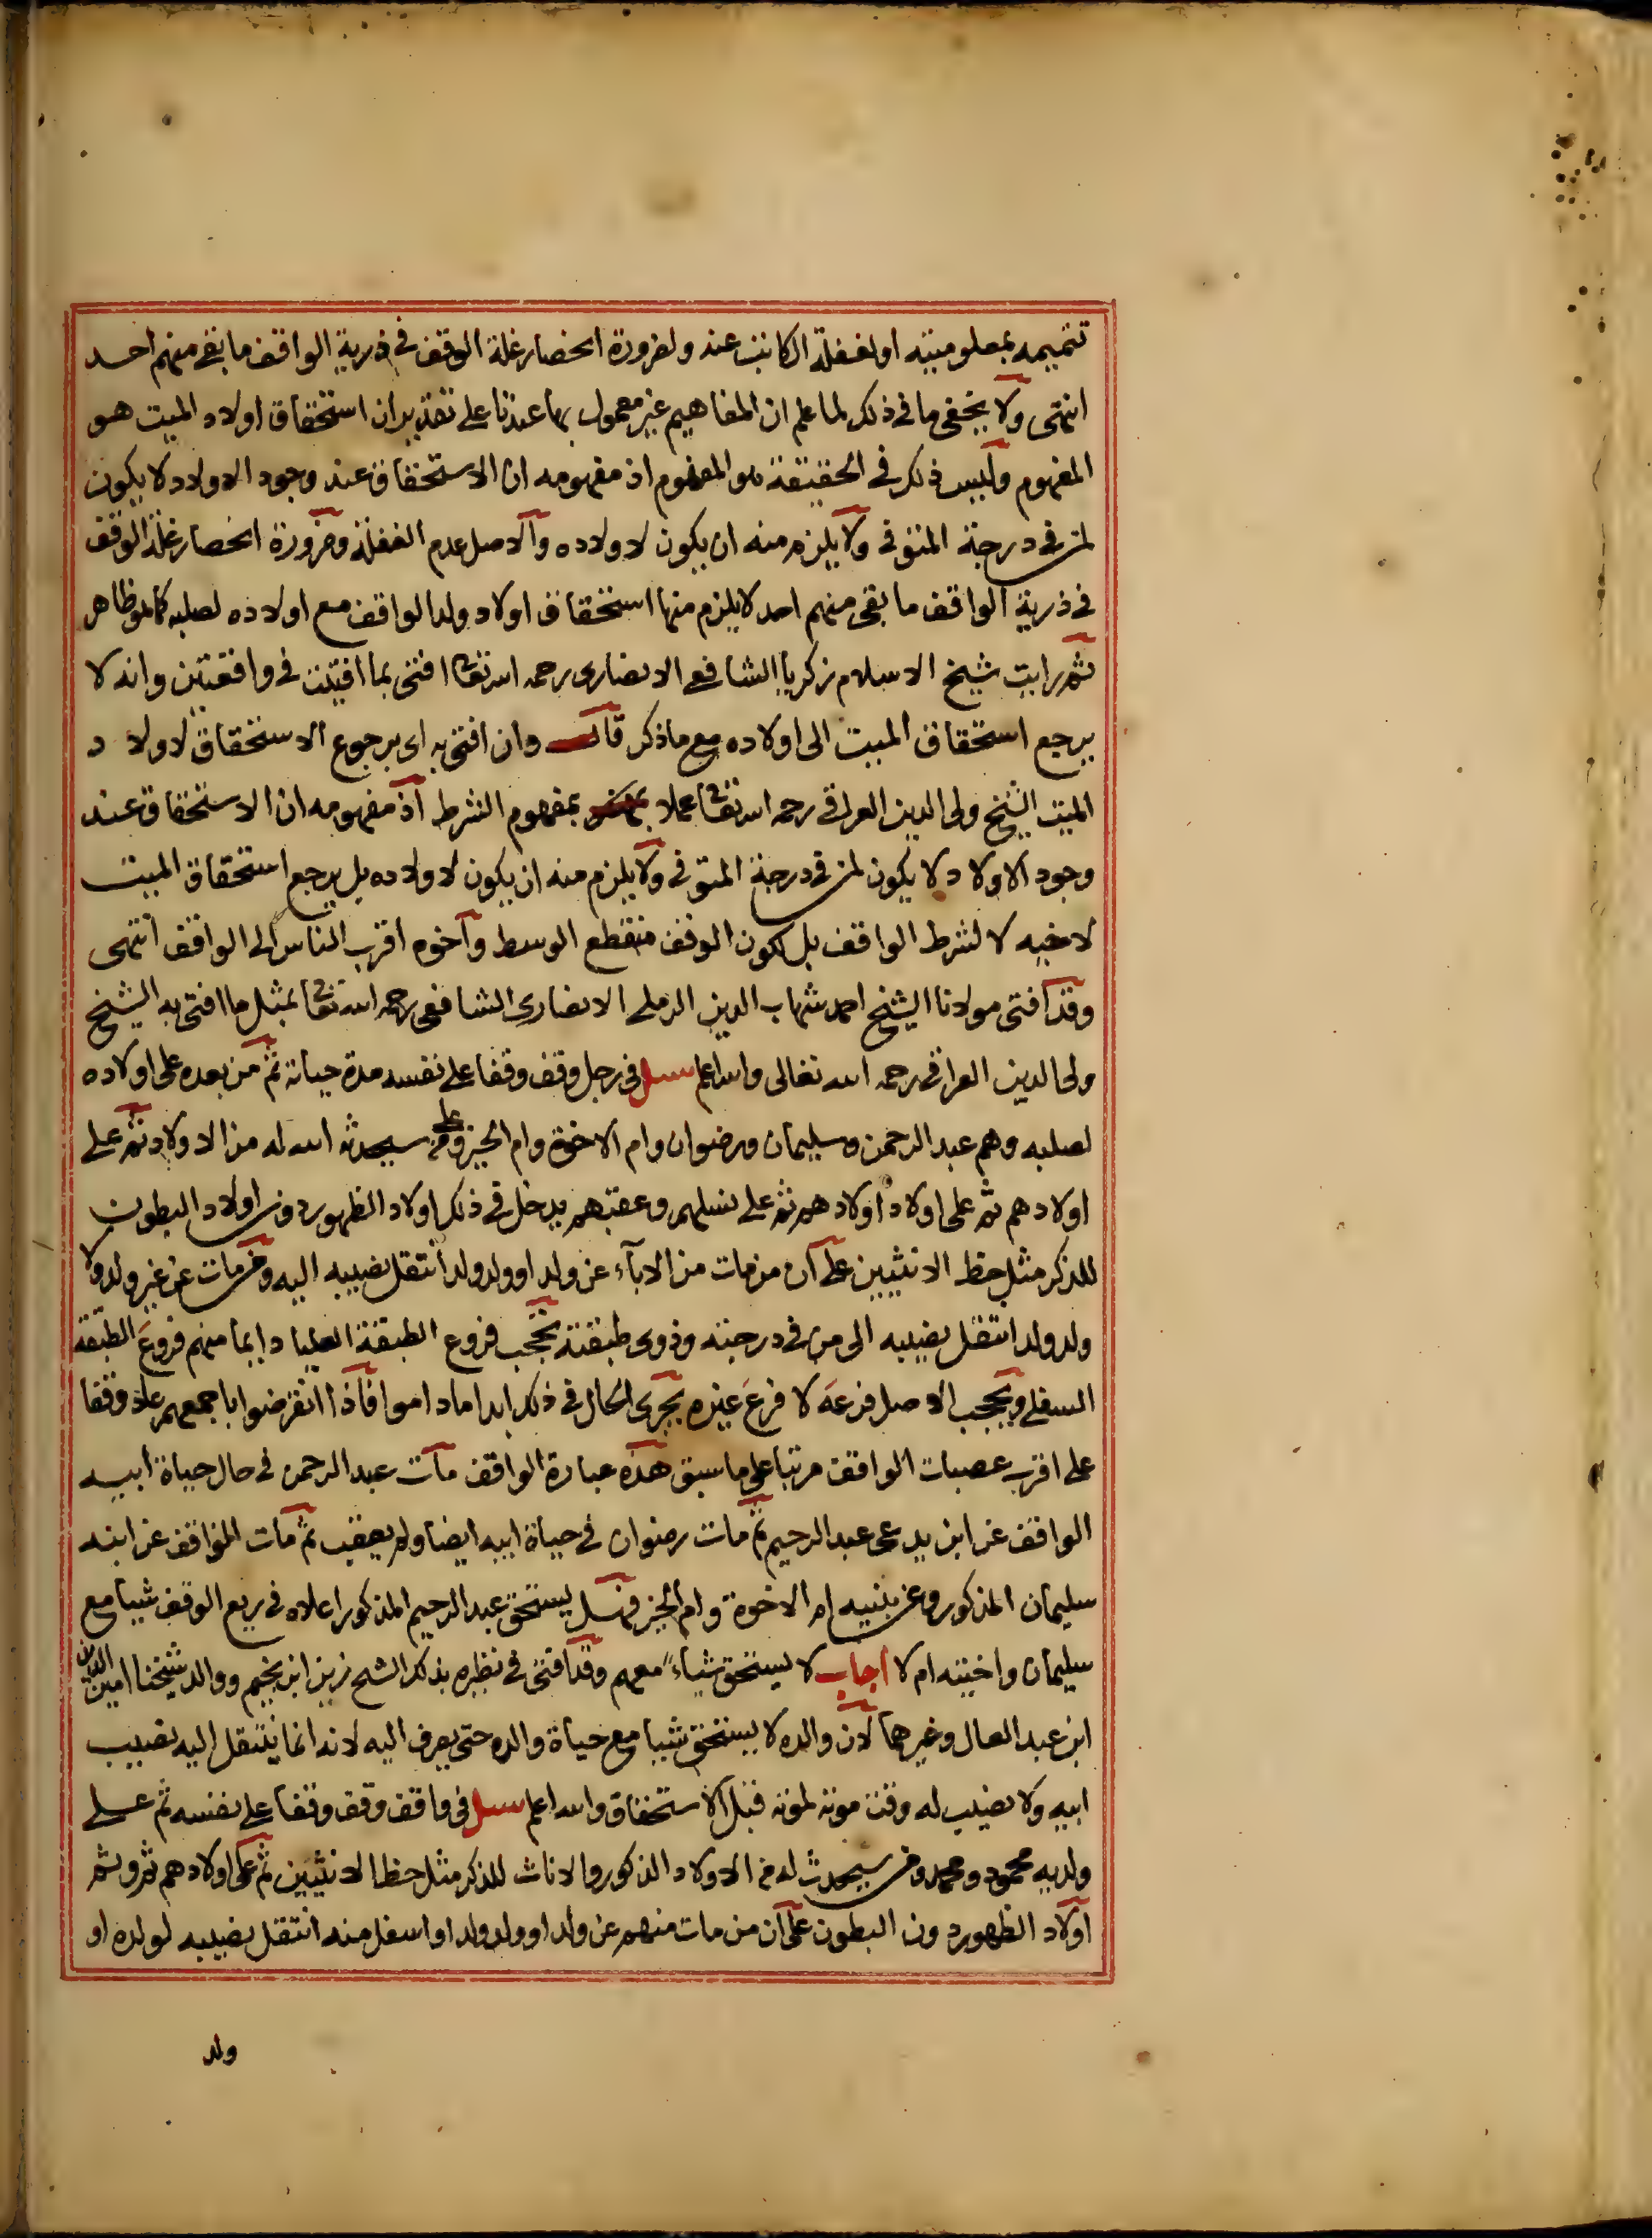 تتميمه بمعلوميته او لغفلة الكاتب عنه ولضرورة انحصار غلة الوقف في ذرية الواقف ما بقي منهم احد
انتهى ولا يخفى ما في ذلك لما علم ان المفاهيم غير معمول بها عندنا على تقدير ان استحقاق اولاد الميت هو
المفهوم وليس ذلك في الحقيقة هو المفهوم اذ مفهومه ان الاستحقاق عند وجود الاولاد لا يكون
لمن في درجة المتوفى ولا يلزم منه ان يكون لاولاده والاصل عدم الغفلة وضرورة انحصار غلة الوقف
في ذرية الواقف ما بقي منهم احد لا يلزم منها استحقاق اولاد ولد الواقف مع اولاده لصلبه كما هو ظاهر
ثم رايت شيخ الاسلام زكريا الشافعي الانصاري رحمه الله تعالى افتى بما افتيت في واقعتين وانه لا
يرجع استحقاق الميت الى اولاده مع ما ذكر قال وان افتى به اي برجوع الاستحقاق لاولاد
الميت الشيخ ولي الدين العراقي رحمه الله تعالى عملا بمفهوم الشرط اذ مفهومه ان الاستحقاق عند
وجود الاولاد لا يكون لمن في درجة المتوفى ولا يلزم منه ان يكون لاولاده بل يرجع استحقاق الميت
لاخيه لا لشرط الواقف بل لكون الوقف منقطع الوسط واخوه اقرب الناس الى الواقف انتهى
وقد افتى مولانا الشيخ احمد شهاب الدين الرملي الانصاري الشافعي رحمه الله تعالى بمثل ما افتى به الشيخ
ولي الدين العراقي رحمه الله تعالى والله اعلم سئل في رجل وقف وقفا على نفسه مدة حياته ثم من بعده على اولاده
لصلبه وهم عبد الرحمن وسليمان ورضوان وام الاخوة وام الخير وعلى من سيحدثه الله له من الاولاد ثم على
اولادهم ثم على اولاد اولادهم ثم على نسلهم وعقبهم يدخل في ذلك اولاد الظهور دون اولاد البطون
للذكر مثل حظ الانثيين على ان من مات من الاباء عن ولد او ولد ولد انتقل نصيبه اليه ومن مات عن غير ولد ولا
ولد ولد انتقل نصيبه الى من في درجته وذوي طبقته تحجب فروع الطبقة العليا دايما منهم فروع الطبقة
السفلى ويحجب الاصل فرعه لا فرع غيره يجري الحال في ذلك ابدا ما داموا فاذا انقرضوا باجمعهم عاد وقفا
على اقرب عصبات الواقف مرتبا على ما سبق هذه عبارة الواقف مات عبد الرحمن في حال حياة ابيه
الواقف عن ابن يدعى عبد الرحيم ثم مات رضوان في حياة ابيه ايضا ولم يعقب ثم مات الواقف عن ابنه
سليمان المذكور وعن بنتيه ام الاخوة وام الخير فهل يستحق عبد الرحيم المذكور اعلاه في ريع الوقف شيا مع
سليمان واختيه ام لا اجاب لا يستحق شياء معهم وقد افتى في نظيره بذلك الشيخ زين ابن نجيم ووالد شيخنا امين الدين
ابن عبد العال وغيرهما لان والده لا يستحق شيا مع حياة والده حتى يصرف اليه لانه انما ينتقل اليه نصيب
ابيه ولا نصيب له وقت موته لموته قبل الاستحقاق والله اعلم سئل في واقف وقف وقفا على نفسه ثم على
ولديه محمود ومحمد ومن سيحدث له من الاولاد الذكور والاناث للذكر مثل حظ الانثيين ثم على اولادهم ثم وثم
اولاد الظهور دون البطون على ان من مات منهم عن ولد او ولد ولد او اسفل منه انتقل نصيبه لولده او
ولد